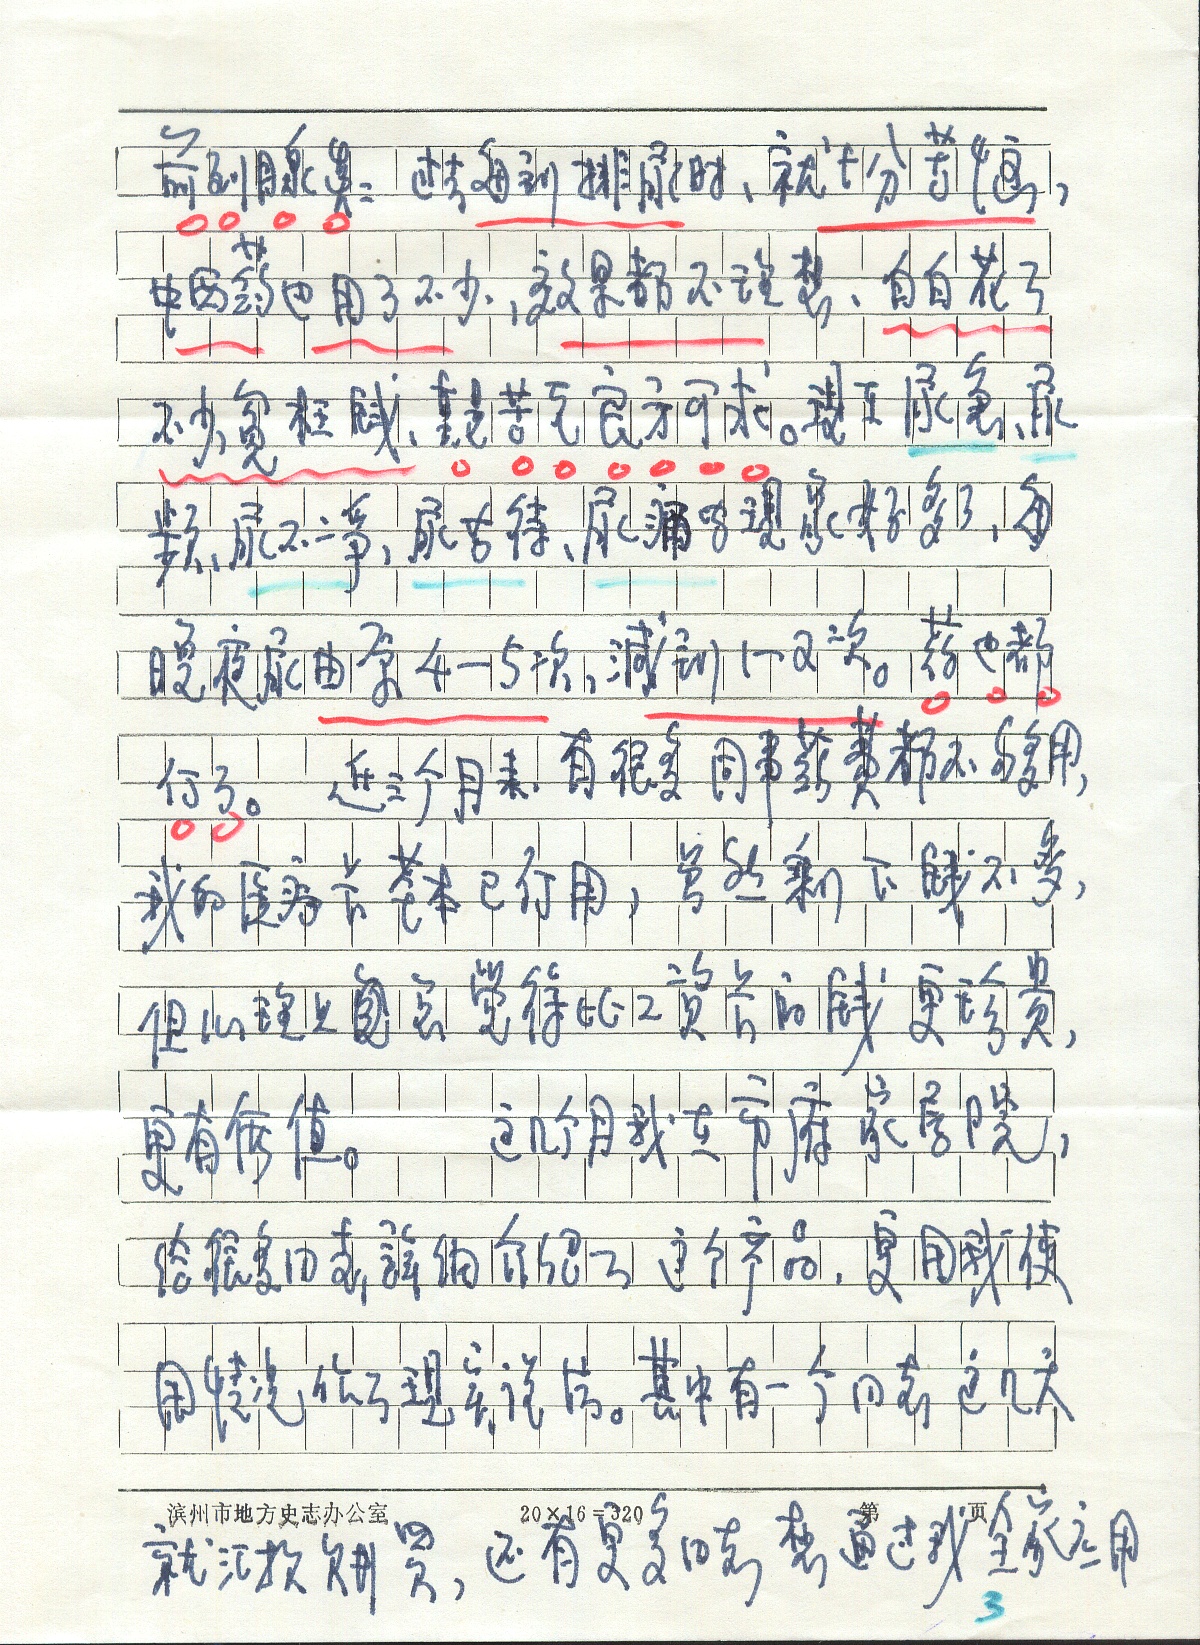 前列腺炎: 过去每到排尿时、就十分苦恼,
中西药也用了不少,效果都不理想、白白花了
不少冤枉钱、真是苦无良方可求。现在尿急、尿
频、尿不净、尿等待、尿痛的现象好多了,每
晚夜尿由原4—5次,减到1—2次。药也都
停了。 近三个月来、有很多同事药费都不够用,
我的医药卡基本已停用,虽然剩下钱不多,
但心理上总觉得比工资卡的钱更珍贵,
更有价值。 这几个月我在市府家属院,
给很多同志,详细介绍了这个产品,更用我使
用情况作了现身说法。其中有一个同志这几天
滨州市地方史志办公室 20×16=320 第 页
就汇款购买,还有更多同志想通过我全家应用
3